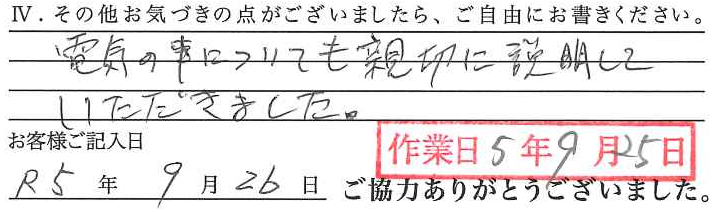 Ⅳ．その他お気づきの点がございましたら、ご自由にお書きください。
電気の事についても親切に説明して
いただきました。
お客様ご記入日
作業日5年9月25日
R5年9月26日
ご協力ありがとうございました。